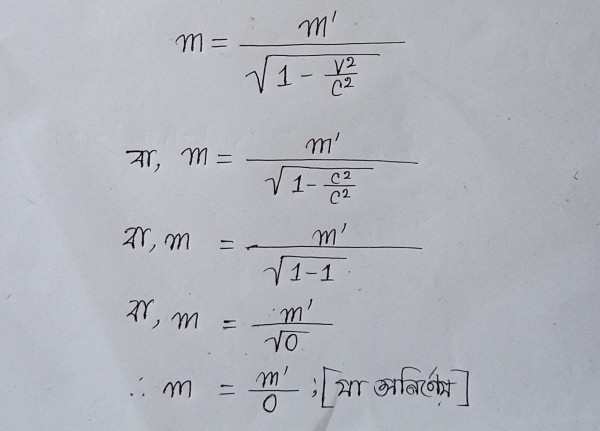 m = m′ / √(1 − V²/C²)
বা, m = m′ / √(1 − C²/C²)
বা, m = m′ / √(1−1)
বা, m = m′ / √0
∴ m = m′/0 ; [যা অনির্ণেয়]